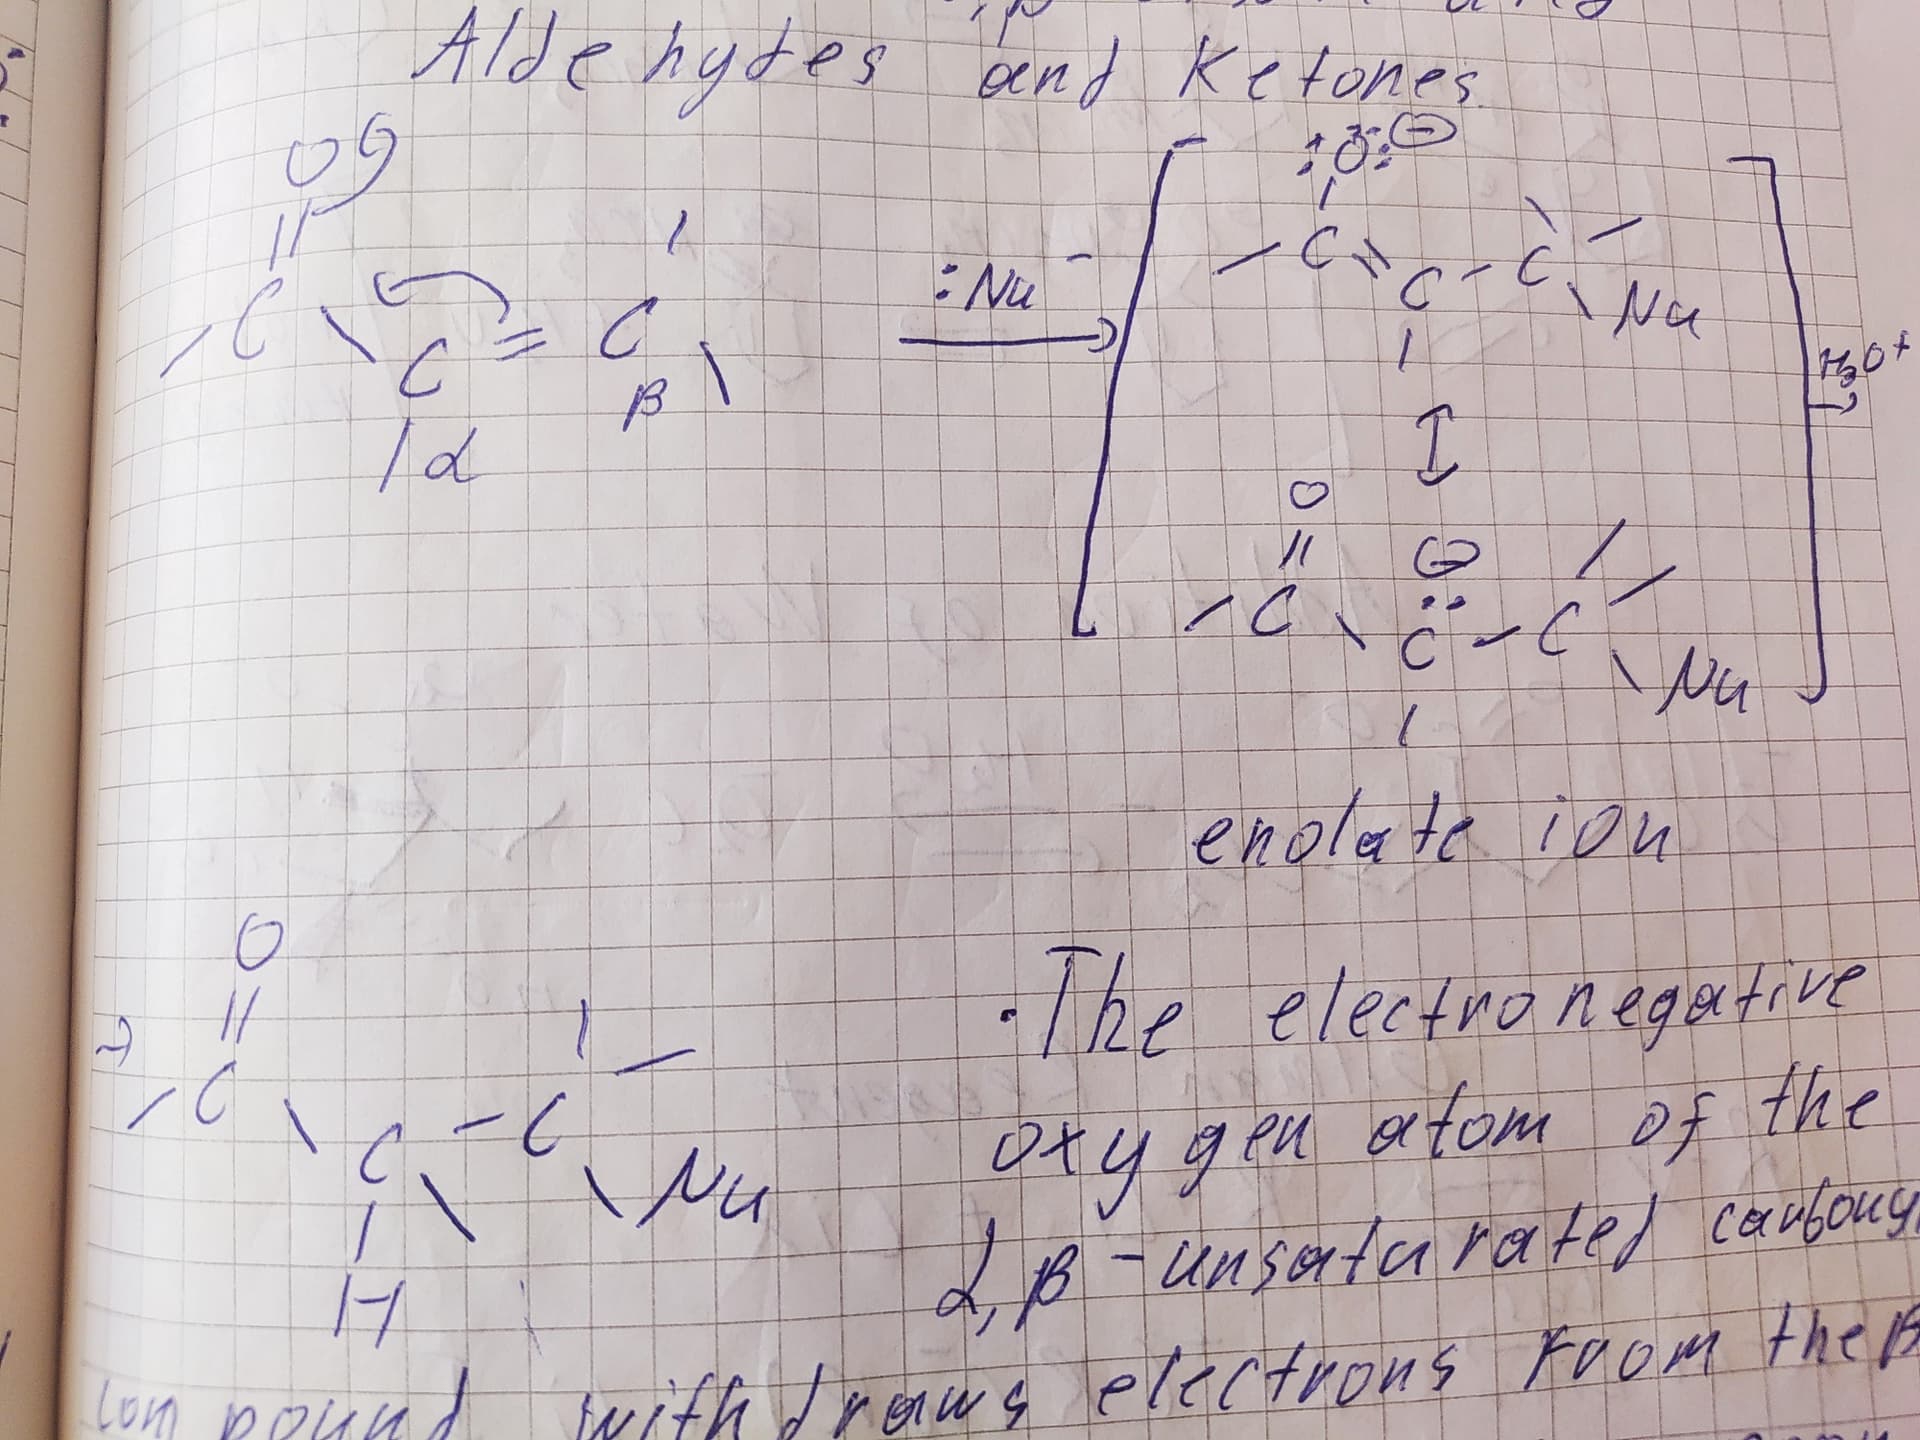 Aldehydes and Ketones
O
C
C = C
β
α
:Nu⁻
:Ö:⊖
C = C - C
Nu
H₃O⁺
O
⊖
C C - C
Nu
enolate ion
O
→
C
C - C
Nu
H
• The electronegative
oxygen atom of the
α, β - unsaturated carbonyl
compound withdraws electrons from the β